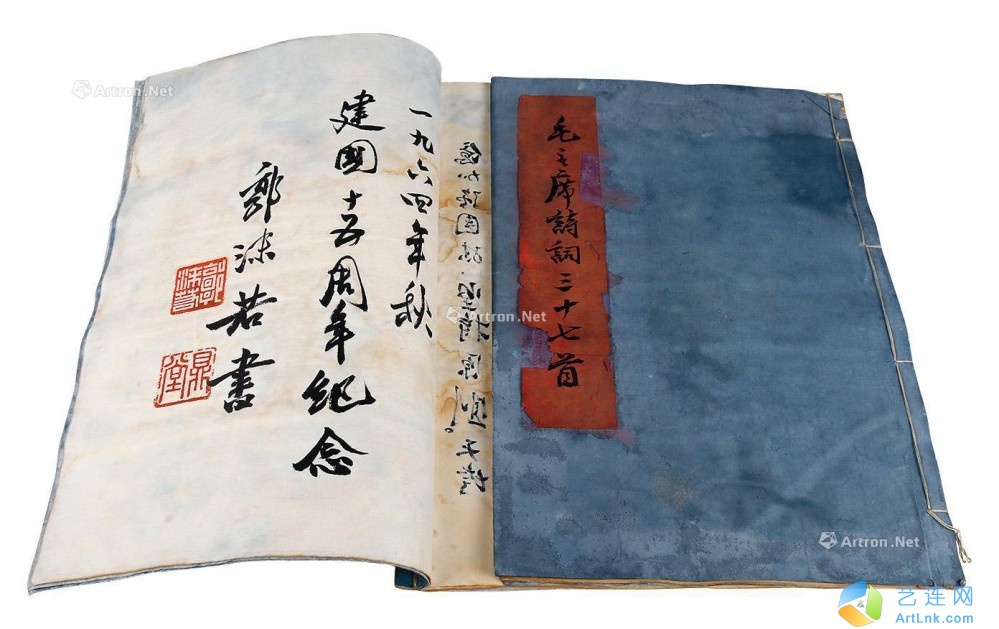 毛主席詩詞三十七首
一九六四年秋
建國十五周年纪念
郭沫若書
郭沫若
鼎堂
Artron.Net
Artron.Net
Artron.Net
艺连网
ArtLnk.com